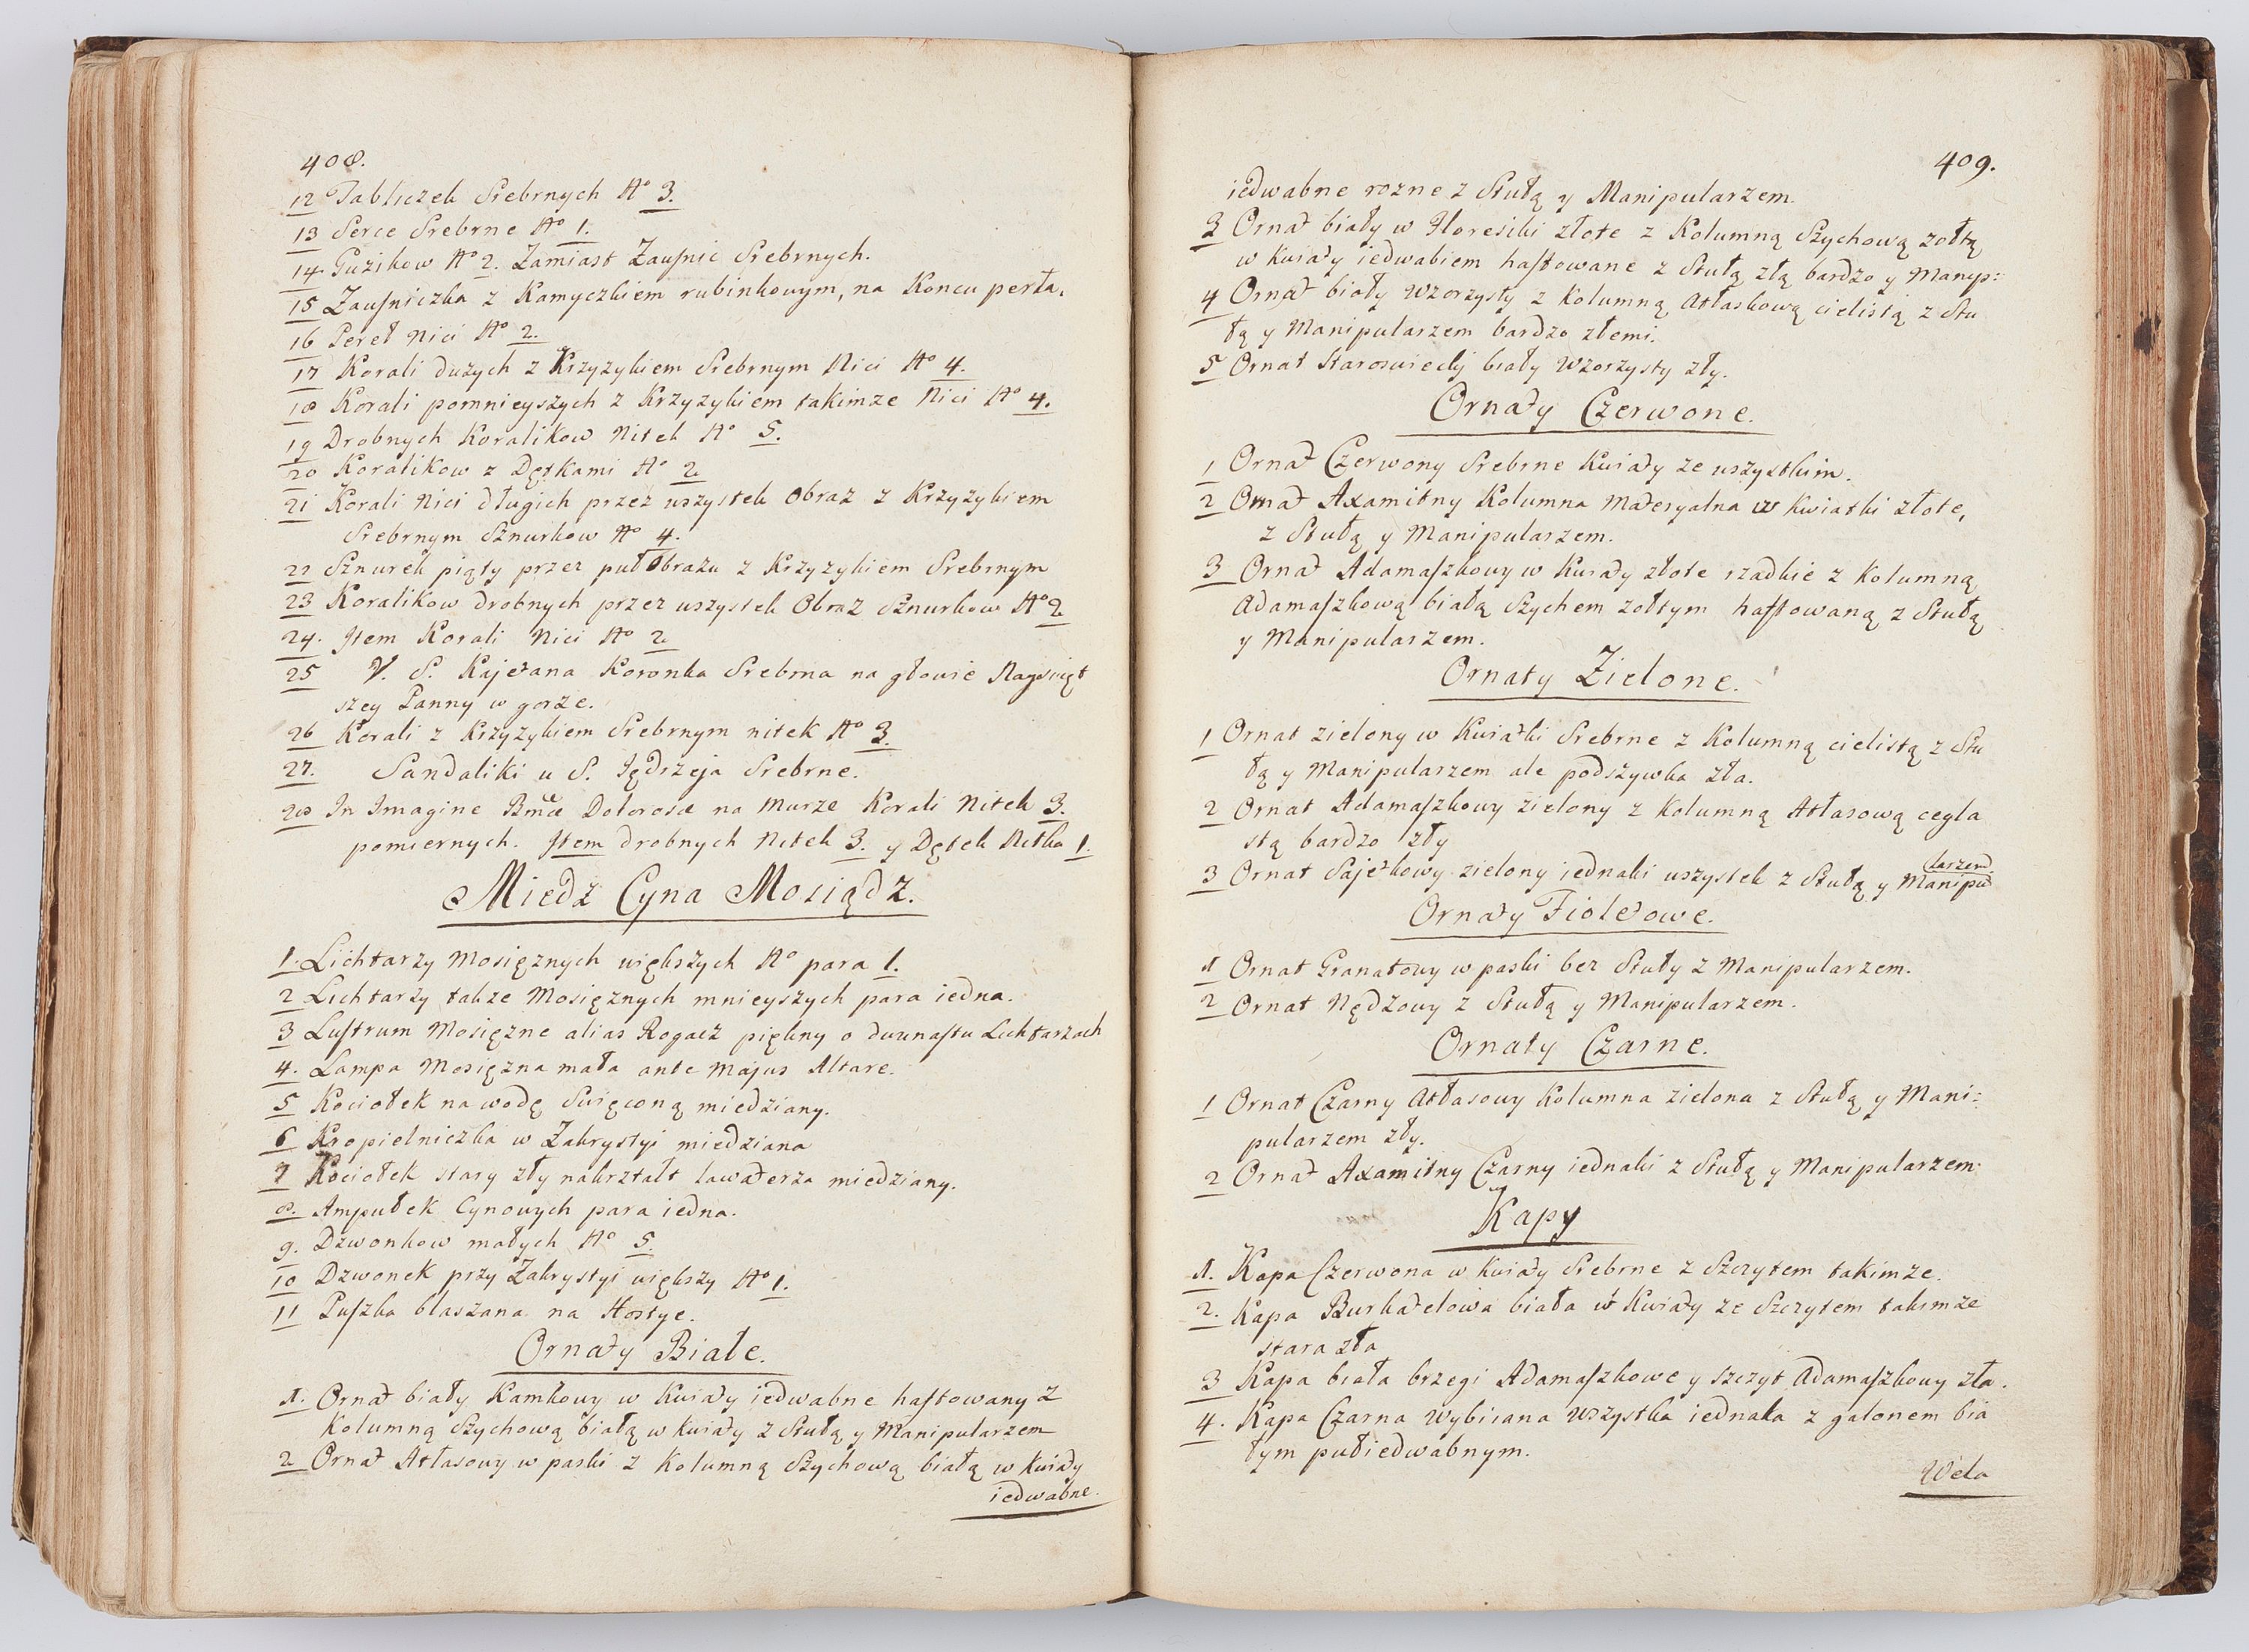 408.
12 Tabliczek Srebrnych No 3.
13 Serce Srebrne No 1.
14. Guzikow No 2. Zamiast Zauſnic Srebrnych.
15 Zauſniczka z Kamyczkiem rubinkowym, na Koncu perła.
16 Pereł Nici No 2.
17 Korali dużych z Krzyzykiem Srebrnym Nici No 4.
18 Korali pomnieyszych z Krzyzykiem takimze Nici No 4.
19 Drobnych Koralikow Nitek No 5.
20 Koralikow z Dętkami No 2
21 Korali Nici długich przez wszystek Obraz z Krzyzykiem
Srebrnym Sznurkow No 4.
22 Sznurek piąty przez puł Obrazu z Krzyzykiem Srebrnym
23 Koralikow drobnych przez wszystek Obraz Sznurkow No 2
24. Item Korali Nici No 2
25 V. S. Kajetana Koronka Srebrna na głowie Nayswięt
szey Panny w gorze.
26 Korali z Krzyzykiem Srebrnym nitek No 3.
27. Sandaliki u S. Jędrzeja Srebrne.
28 In Imagine Bmæ Dolorosæ na Murze Korali Nitek 3.
pomiernych. Item drobnych Nitek 3. y Dętek Nitka 1.
Miedz Cyna Mosiądz.
1. Lichtarzy Mosięznych większych No para 1.
2 Lichtarzy takze Mosięznych mnieyszych para iedna.
3 Luſtrum Mosięzne alias Rogacz piękny o dwunaſtu Lichtarzach
4. Lampa Mosięzna mała ante Majus Altare.
5 Kociołek na wodę Swięconą miedziany.
6 Kropielniczka w Zakrystyi miedziana
7 Kociołek stary zły nakrztałt lawaterza miedziany.
8. Ampułek Cynowych para iedna.
9. Dzwonkow małych No 5.
10 Dzwonek przy Zakrystyi większy No 1.
11 Puſzka blaszana na Hostye.
Ornaty Białe.
1. Ornat biały Kamkowy w Kwiaty iedwabne haſtowany z
Kolumną Szychową białą w kwiaty z Stułą y Manipularzem
2 Ornat Atłasowy w paski z Kolumną Szychową białą w kwiaty
iedwabne.
409.
iedwabne rozne z Stułą y Manipularzem.
3 Ornat biały w Floresiki złote z Kolumną Szychową zołtą
w kwiaty iedwabiem haſtowane z Stułą złą bardzo y Manyp:
4 Ornat biały wzorzysty z Kolumną Atłaskową cielistą z Stu
łą y Manipularzem bardzo złemi.
5 Ornat Staroswiecky biały wzorzysty zły.
Ornaty Czerwone.
1 Ornat Czerwony Srebrne Kwiaty ze wszystkim.
2 Ornat Axamitny Kolumna Materyalna w kwiatki złote,
z Stułą y Manipularzem.
3 Ornat Adamaſzkowy w Kwiaty złote rzadkie z Kolumną
Adamaſzkową białą Szychem zołtym haſtowaną z Stułą
y Manipularzem.
Ornaty Zielone.
1 Ornat zielony w Kwiatki Srebrne z Kolumną cielistą z Stu
łą y Manipularzem ale podszywka zła.
2 Ornat Adamaſzkowy zielony z Kolumną Atłasową cegla
stą bardzo zły
3 Ornat Sajetkowy zielony iednaki wszystek z Stułą y Manipu
larzem.
Ornaty Fioletowe.
1 Ornat Granatowy w paski bez Stuły z Manipularzem.
2 Ornat Nędzowy z Stułą y Manipularzem.
Ornaty Czarne.
1 Ornat Czarny Atłasowy Kolumna zielona z Stułą y Mani:
pularzem zły.
2 Ornat Axamitny Czarny iednaki z Stułą y Manipularzem.
Kapy
1. Kapa Czerwona w kwiaty Srebrne z Szczytem takimze.
2. Kapa Burkatelowa biała w Kwiaty ze Szczytem takimze
stara zła
3 Kapa biała brzegi Adamaſzkowe y szczyt Adamaſzkowy zła.
4. Kapa Czarna wybiiana wszystka iednaka z galonem bia
łym pułiedwabnym.
Wela